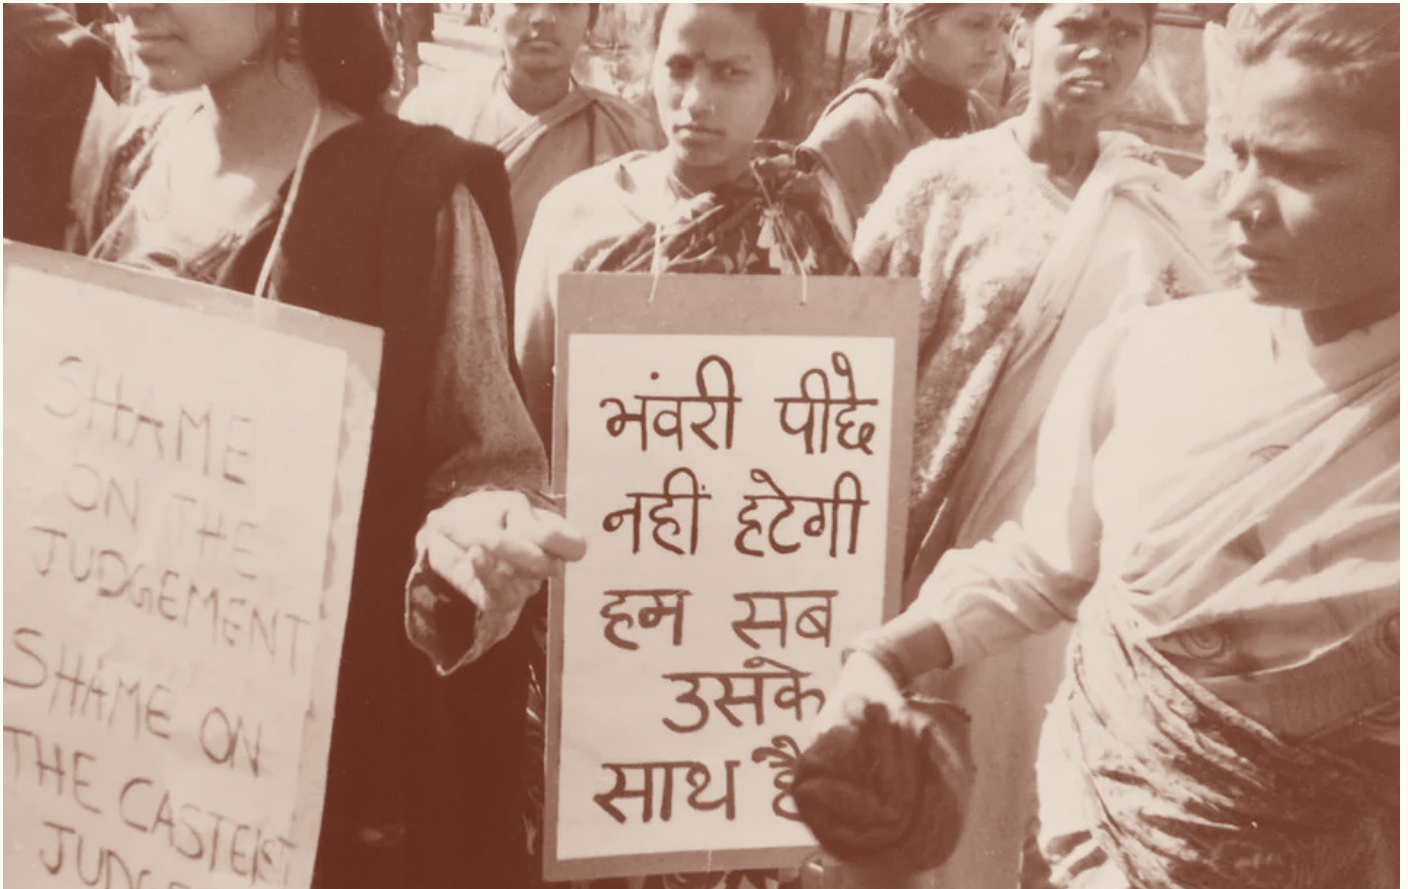 SHAME
ON THE
JUDGEMENT
SHAME ON
THE CASTEIST
भंवरी पीछे
नहीं हटेगी
हम सब
उसके
साथ